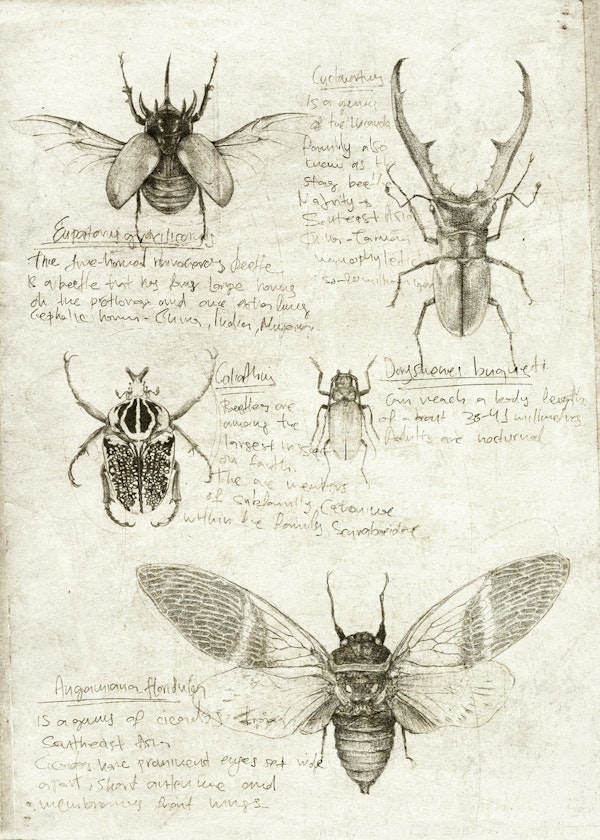 Eupatorus gracilicornis
The five-horned rhinoceros beetle
is a beetle that has four large horns
on the prothorax and one extra long
cephalic horn - China, India, Myanmar.
Cyclommatus
Is a genus
of the Lucanidae
family also
know as the
stag beetle
Majority
Southeast Asia
monophyletic
Goliathus
Beetles are
among the
largest insect
on Earth.
The are members
of subfamily Cetoniinae
within the family Scarabaeidae
Doryshenes buqueti.
Can reach a body length
of about 36-41 millimetres
Adults are nocturnal
Angamiana floridula
Is a genus of cicadas from
Southeast Asia
Cicadas have prominent eyes set wide
apart, short antennae and
membranous front wings